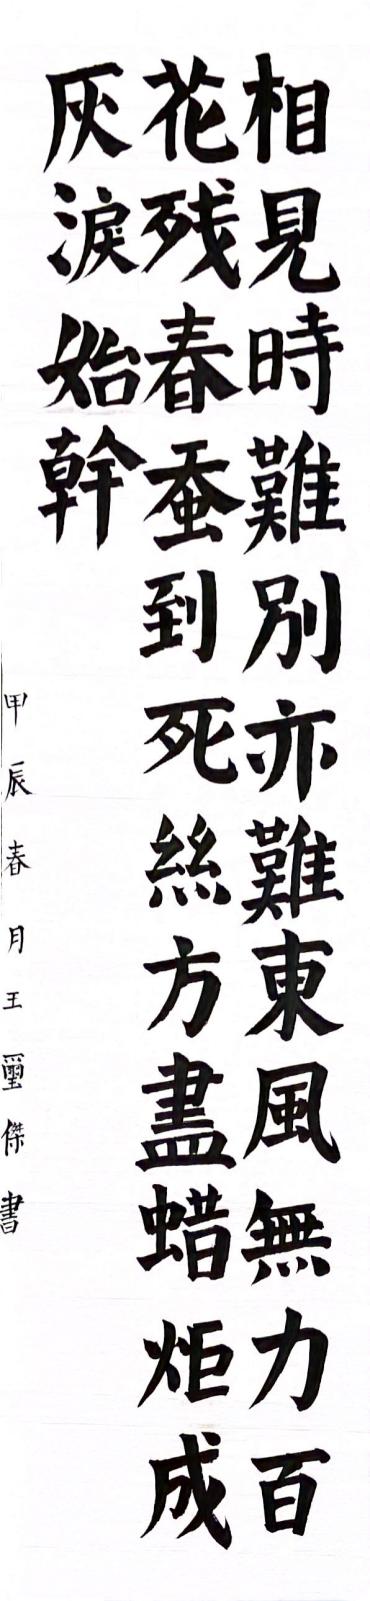 相見時難別亦難東風無力百
花残春蚕到死絲方盡蜡炬成
灰淚始幹
甲辰春月王璽傑書